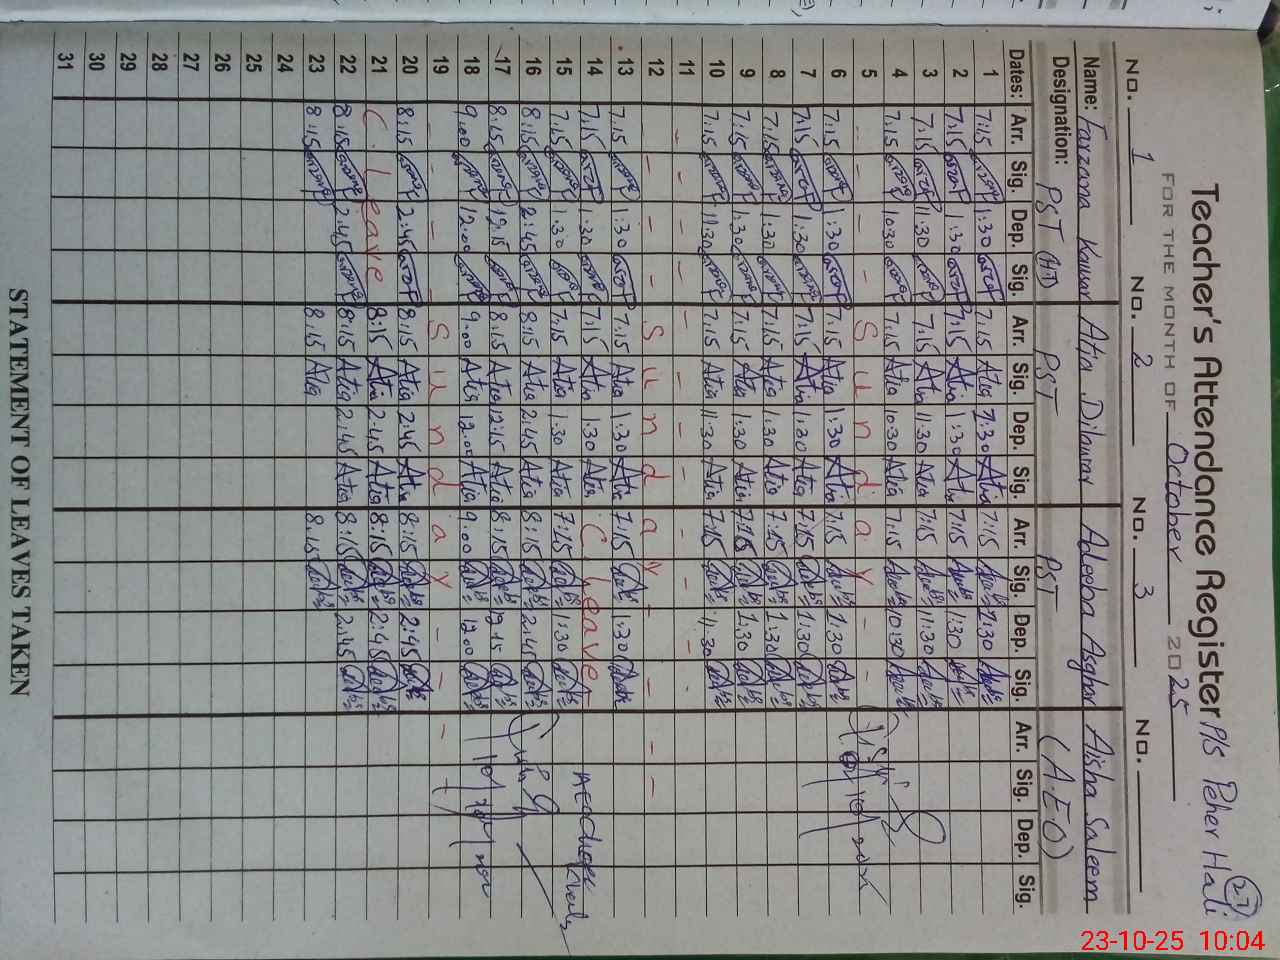 27
Teacher's Attendance Register P/S Peher Hali
FOR THE MONTH OF October 2025
No. 1 No. 2 No. 3 No.
Name: Farzana Kawar Atia Dilawar Adeeba Asghar Aisha Saleem
Designation: PST (HT) PST PST (A.E.O)
Dates: Arr. Sig. Dep. Sig. Arr. Sig. Dep. Sig. Arr. Sig. Dep. Sig. Arr. Sig. Dep. Sig.
1 7:15 1:30 7:15 Atia 1:30 Atia 7:15 1:30
2 7:15 1:30 7:15 Atia 1:30 Atia 7:15 1:30
3 7:15 11:30 7:15 Atia 11:30 Atia 7:15 11:30
4 7:15 10:30 7:15 Atia 10:30 Atia 7:15 10:30
5 - - - - S u n d a y - -
6 7:15 1:30 7:15 Atia 1:30 Atia 7:15 1:30
7 7:15 1:30 7:15 Atia 1:30 Atia 7:15 1:30
8 7:15 1:30 7:15 Atia 1:30 Atia 7:15 1:30
9 7:15 1:30 7:15 Atia 1:30 Atia 7:15 1:30
10 7:15 11:30 7:15 Atia 11:30 Atia 7:15 11:30
11 - - - - - - - - - - - -
12 - - - - S u n d a y - - - -
13 7:15 1:30 7:15 Atia 1:30 Atia 7:15 1:30
14 7:15 1:30 7:15 Atia 1:30 Atia C. Leave
15 7:15 1:30 7:15 Atia 1:30 Atia 7:15 1:30
16 8:15 2:45 8:15 Atia 2:45 Atia 8:15 2:45
17 8:15 12:15 8:15 Atia 12:15 Atia 8:15 12:15
18 9:00 12:00 9:00 Atia 12:00 Atia 9:00 12:00
19 - - - - S u n d a y - - - -
20 8:15 2:45 8:15 Atia 2:45 Atia 8:15 2:45
21 C. Leave 8:15 Atia 2:45 Atia 8:15 2:45
22 8:15 2:45 8:15 Atia 2:45 Atia 8:15 2:45
23 8:15 8:15 Atia 8:15
24
25
26
27
28
29
30
31
STATEMENT OF LEAVES TAKEN
23-10-25 10:04